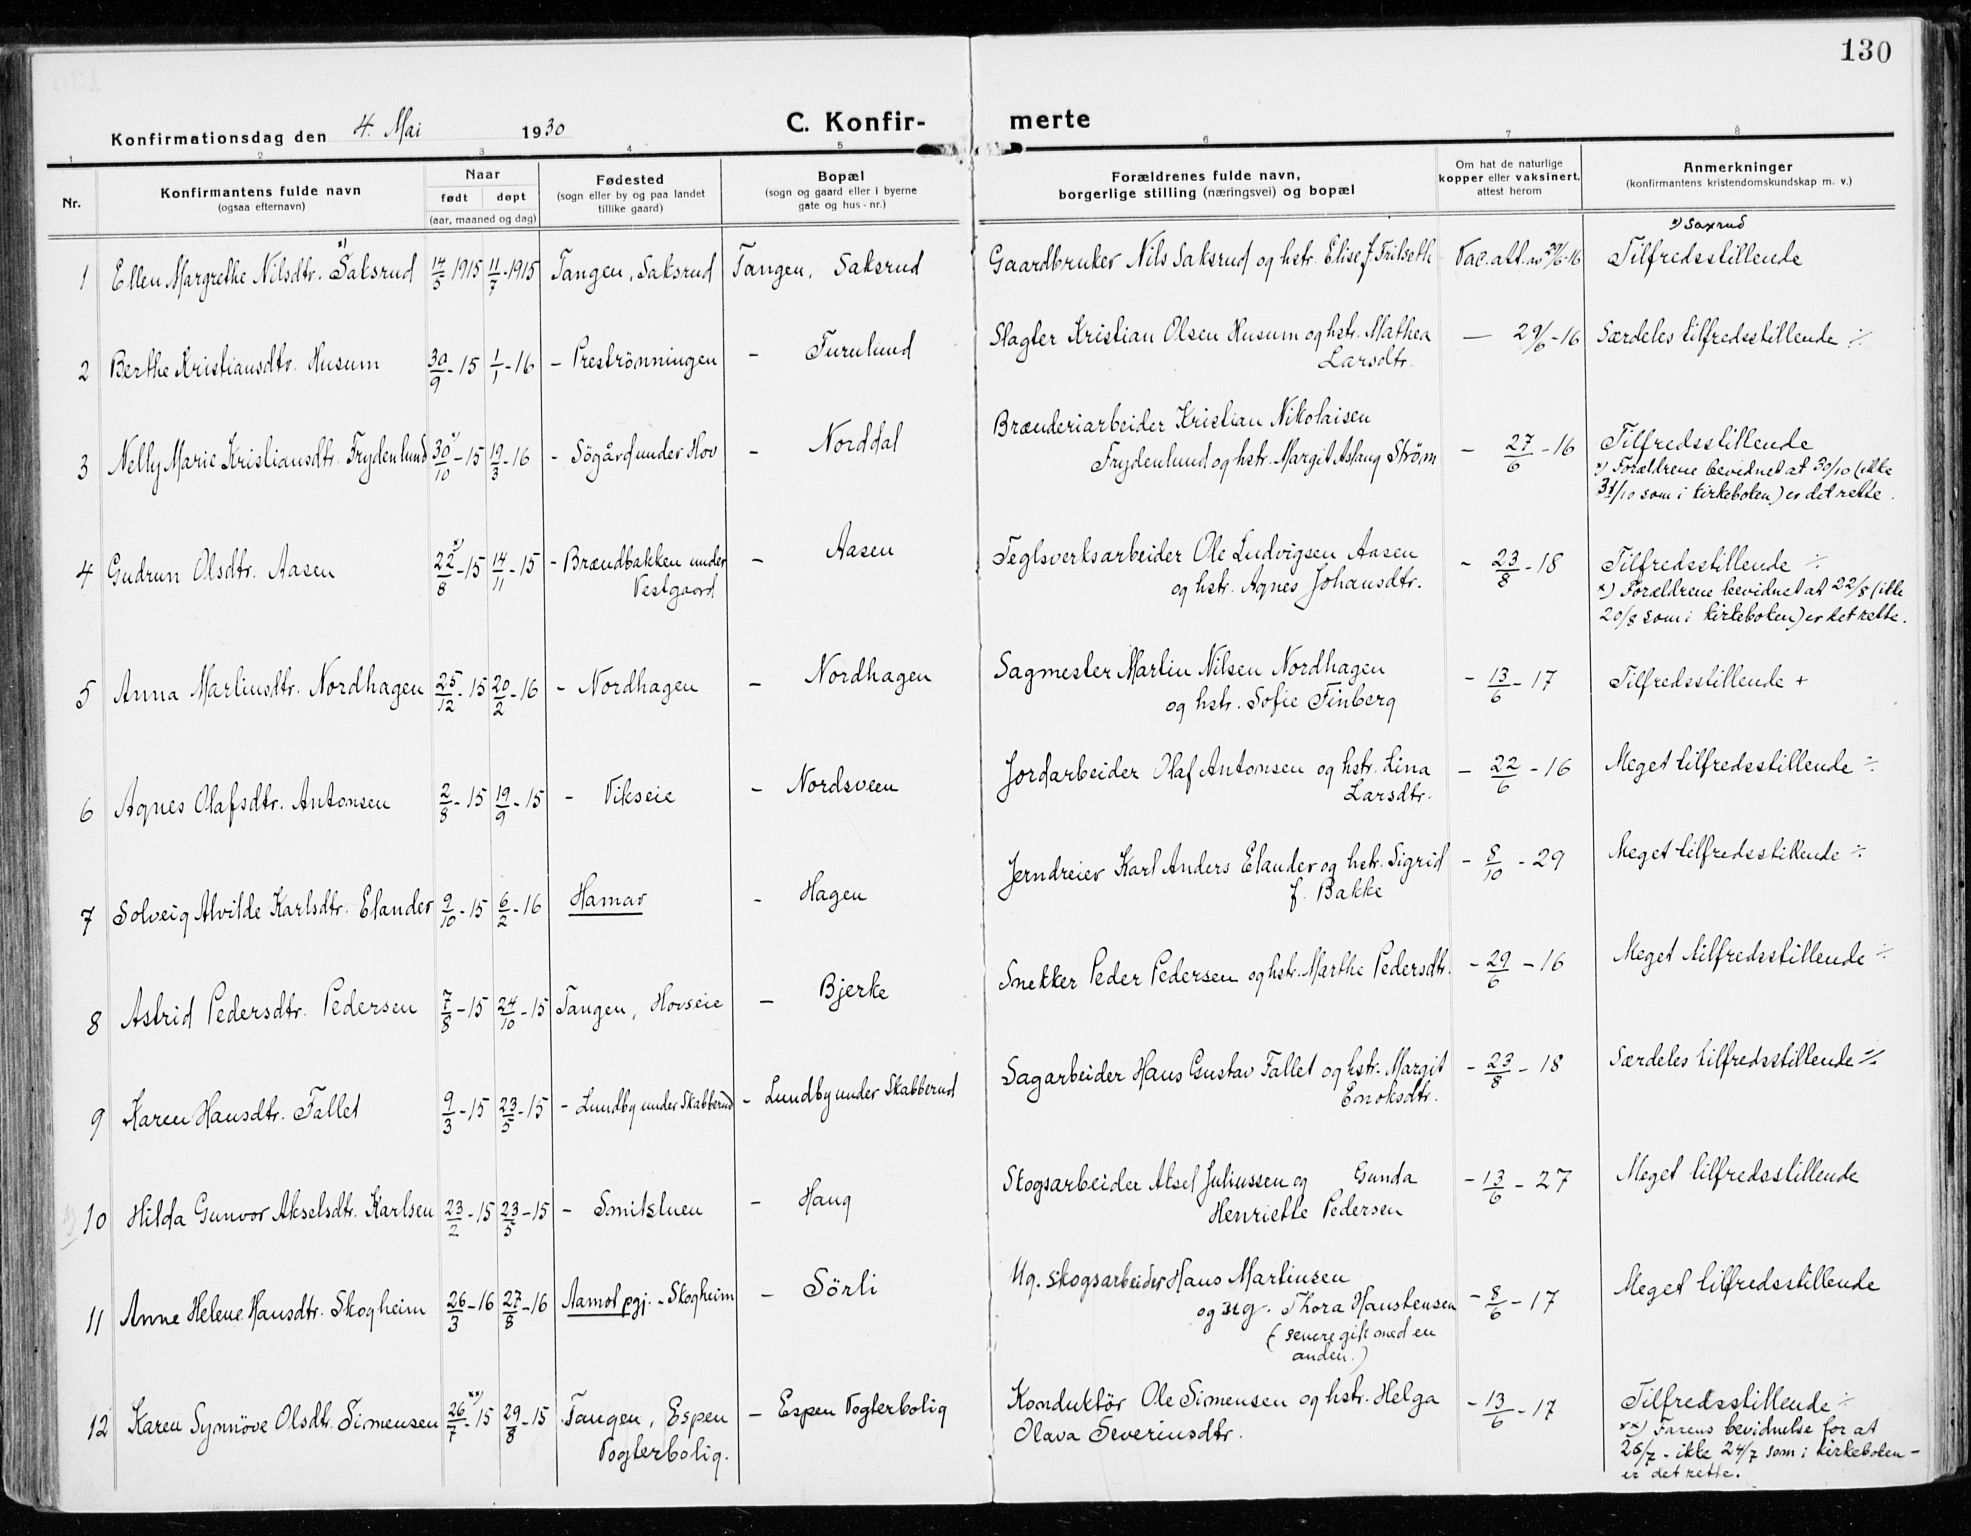 130
Konfirmationsdag den 4. Mai 1930 C. Konfirmerte
1 2 3 4 5 6 7 8
Nr.
Konfirmantens fulde navn
(ogsaa efternavn)
Naar
født døpt
(aar, maaned og dag)
Fødested
(sogn eller by og paa landet
tillike gaard)
Bopæl
(sogn og gaard eller i byerne
gate og hus-nr.)
Forældrenes fulde navn,
borgerlige stilling (næringsvei) og bopæl
Om hat de naturlige
kopper eller vaksinert,
attest herom
Anmerkninger
(konfirmantens kristendomskundskap m. v.)
x) Saxrud
1 Ellen Margrethe Nilsdtr. Saksrud x) 14/5 1915 11/7-1915 Tangen, Saksrud Tangen, Saksrud Gaardbruker Nils Saksrud og hstr. Elise f. Frilseth Vac. att. av 29/6-16 Tilfredsstillende
2 Berthe Kristiansdtr. Husum 30/9-15 1/1-16 - Prestrønningen - Furulund Slagter Kristian Olsen Husum og hstr. Mathea
Larsdtr. — 29/6-16 Særdeles tilfredsstillende ÷
3 Nelly Marie Kristiansdtr. Frydenlund 30/10 x)-15 19/3-16 - Sögård under Hov - Norddal Brænderiarbeider Kristian Nikolaisen
Frydenlund og hstr. Margit Aslaug Strøm - 27/6-16 Tilfredsstillende
x) Forældrene bevidnet at 30/10 (ikke
31/10 som i kirkeboken) er det rette.
4 Gudrun Olsdtr. Aasen 22/8 x)-15 14/11-15 - Brændbakken under
Vestgaard - Aasen Teglsverksarbeider Ole Ludvigsen Aasen
og hstr. Agnes Johansdtr. - 23/8-18 Tilfredsstillende ÷
x) Forældrene bevidnet at 22/8 (ikke
20/8 som i kirkeboken) er det rette.
5 Anna Martinsdtr. Nordhagen 25/12-15 20/2-16 - Nordhagen - Nordhagen Sagmester Martin Nilsen Nordhagen
og hstr. Sofie Finberg - 13/6-17 Tilfredsstillende +
6 Agnes Olafsdtr. Antonsen 2/8-15 19/9-15 - Vikseie - Nordsveen Jordarbeider Olaf Antonsen og hstr. Lina
Larsdtr. - 22/6-16 Meget tilfredsstillende ÷
7 Solveig Alvilde Karlsdtr. Elander 9/10-15 6/2-16 Hamar - Hagen Jerndreier Karl Anders Elander og hstr. Sigrid
f. Bakke - 8/10-29 Meget tilfredsstillende ÷
8 Astrid Pedersdtr. Pedersen 7/8-15 24/10-15 Tangen, Hovseie - Bjerke Snekker Peder Pedersen og hstr. Marthe Pedersdtr. - 29/6-16 Meget tilfredsstillende ÷
9 Karen Hansdtr. Fallet 9/3-15 23/5-15 - Lundby under Skabberud - Lundby under Skabberud Sagarbeider Hans Gustav Fallet og hstr. Margit
Enoksdtr. - 23/8-18 Særdeles tilfredsstillende ÷
10 Hilda Gunvor Akselsdtr. Karlsen 23/2-15 23/5-15 - Smitsluen - Haug Skogsarbeider Aksel Juliussen og Gunda
Henriette Pedersen - 13/6-27 Meget tilfredsstillende
11 Anne Helene Hansdtr. Skogheim 26/3-16 27/8-16 Aamot pgj. - Skogheim - Sörli Ug. skogsarbeider Hans Martinsen
og ug. Thora Haustensen
(senere gift med en
anden.) - 8/6-17 Meget tilfredsstillende
12 Karen Synnöve Olsdtr. Simensen 26/7 xx)-15 29/8-15 Tangen, Espen
Vogterbolig. - Espen Vogterbolig Konduktör Ole Simensen og hstr. Helga
Olava Severinsdtr. - 13/6-17 Tilfredsstillende ÷
xx) Farens bevidnelse for at
26/7 - ikke 24/7 som i kirkeboken -
er det rette.